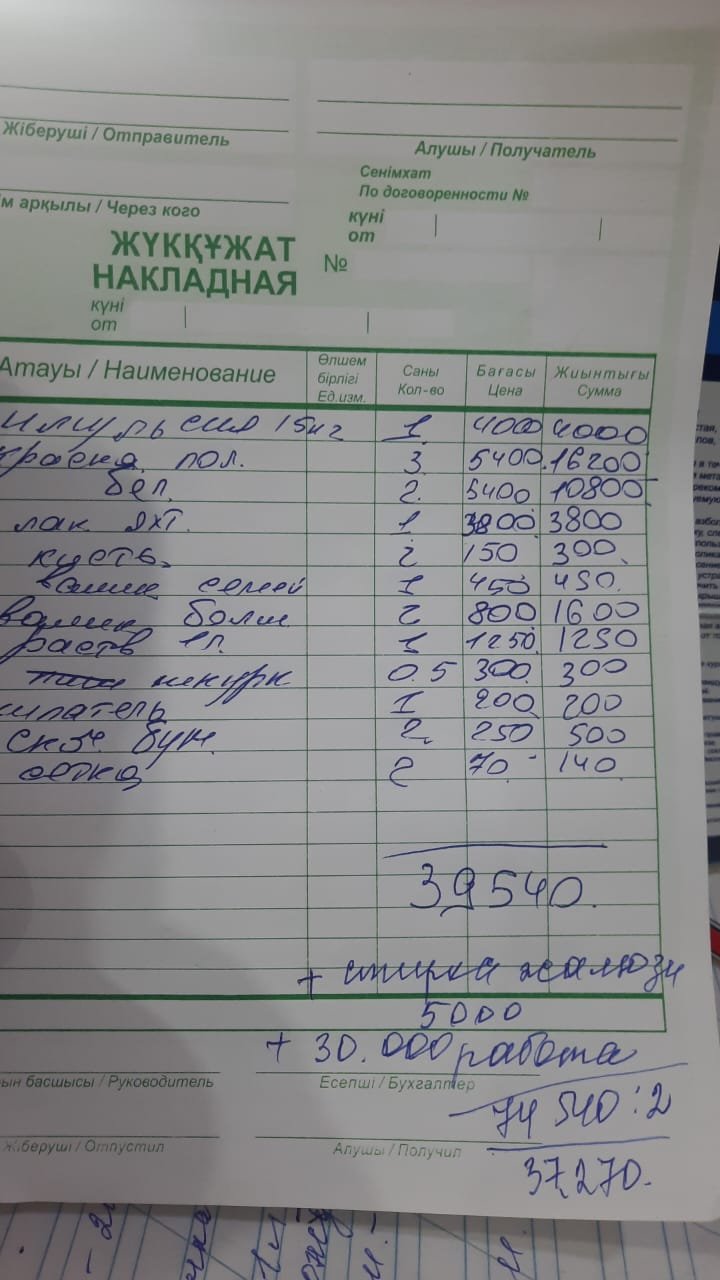 Жіберуші / Отправитель
Алушы / Получатель
Сенімхат
По договоренности №
ім арқылы / Через кого
күні
от
ЖҮКҚҰЖАТ
НАКЛАДНАЯ
№
күні
от
Атауы / Наименование Өлшем бірлігі Ед.изм. Саны Кол-во Бағасы Цена Жиынтығы Сумма
15кг 1 4000 4000
краска пол. 3 5400 16200
бел. 2 5400 10800
лак яхт. 1 3800 3800
кисть 2 150 300
валик 1 450 450
валик больш 2 800 1600
раств 1л. 1 1250 1250
шкурк 0.5 300 300
шпатель 1 200 200
скот. бум. 2 250 500
сетка 2 70 140
39540.
+ стирка жалюзи
5000
+ 30.000 работа
ын басшысы / Руководитель Есепші / Бухгалтер
74 540:2
Жіберуші / Отпустил Алушы / Получил
37270.